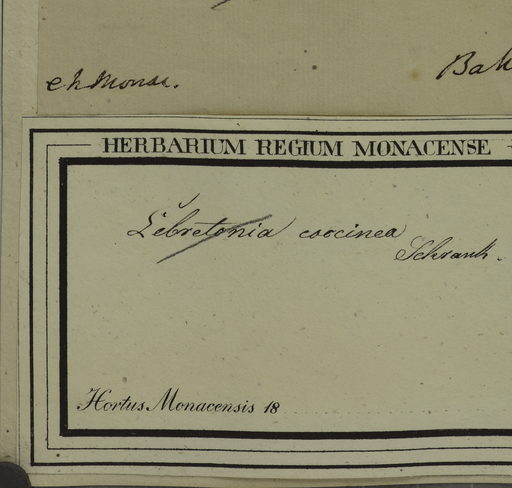 eh Monac.
HERBARIUM REGIUM MONACENSE
Lebretonia coccinea
Schrank.
Hortus Monacensis 18